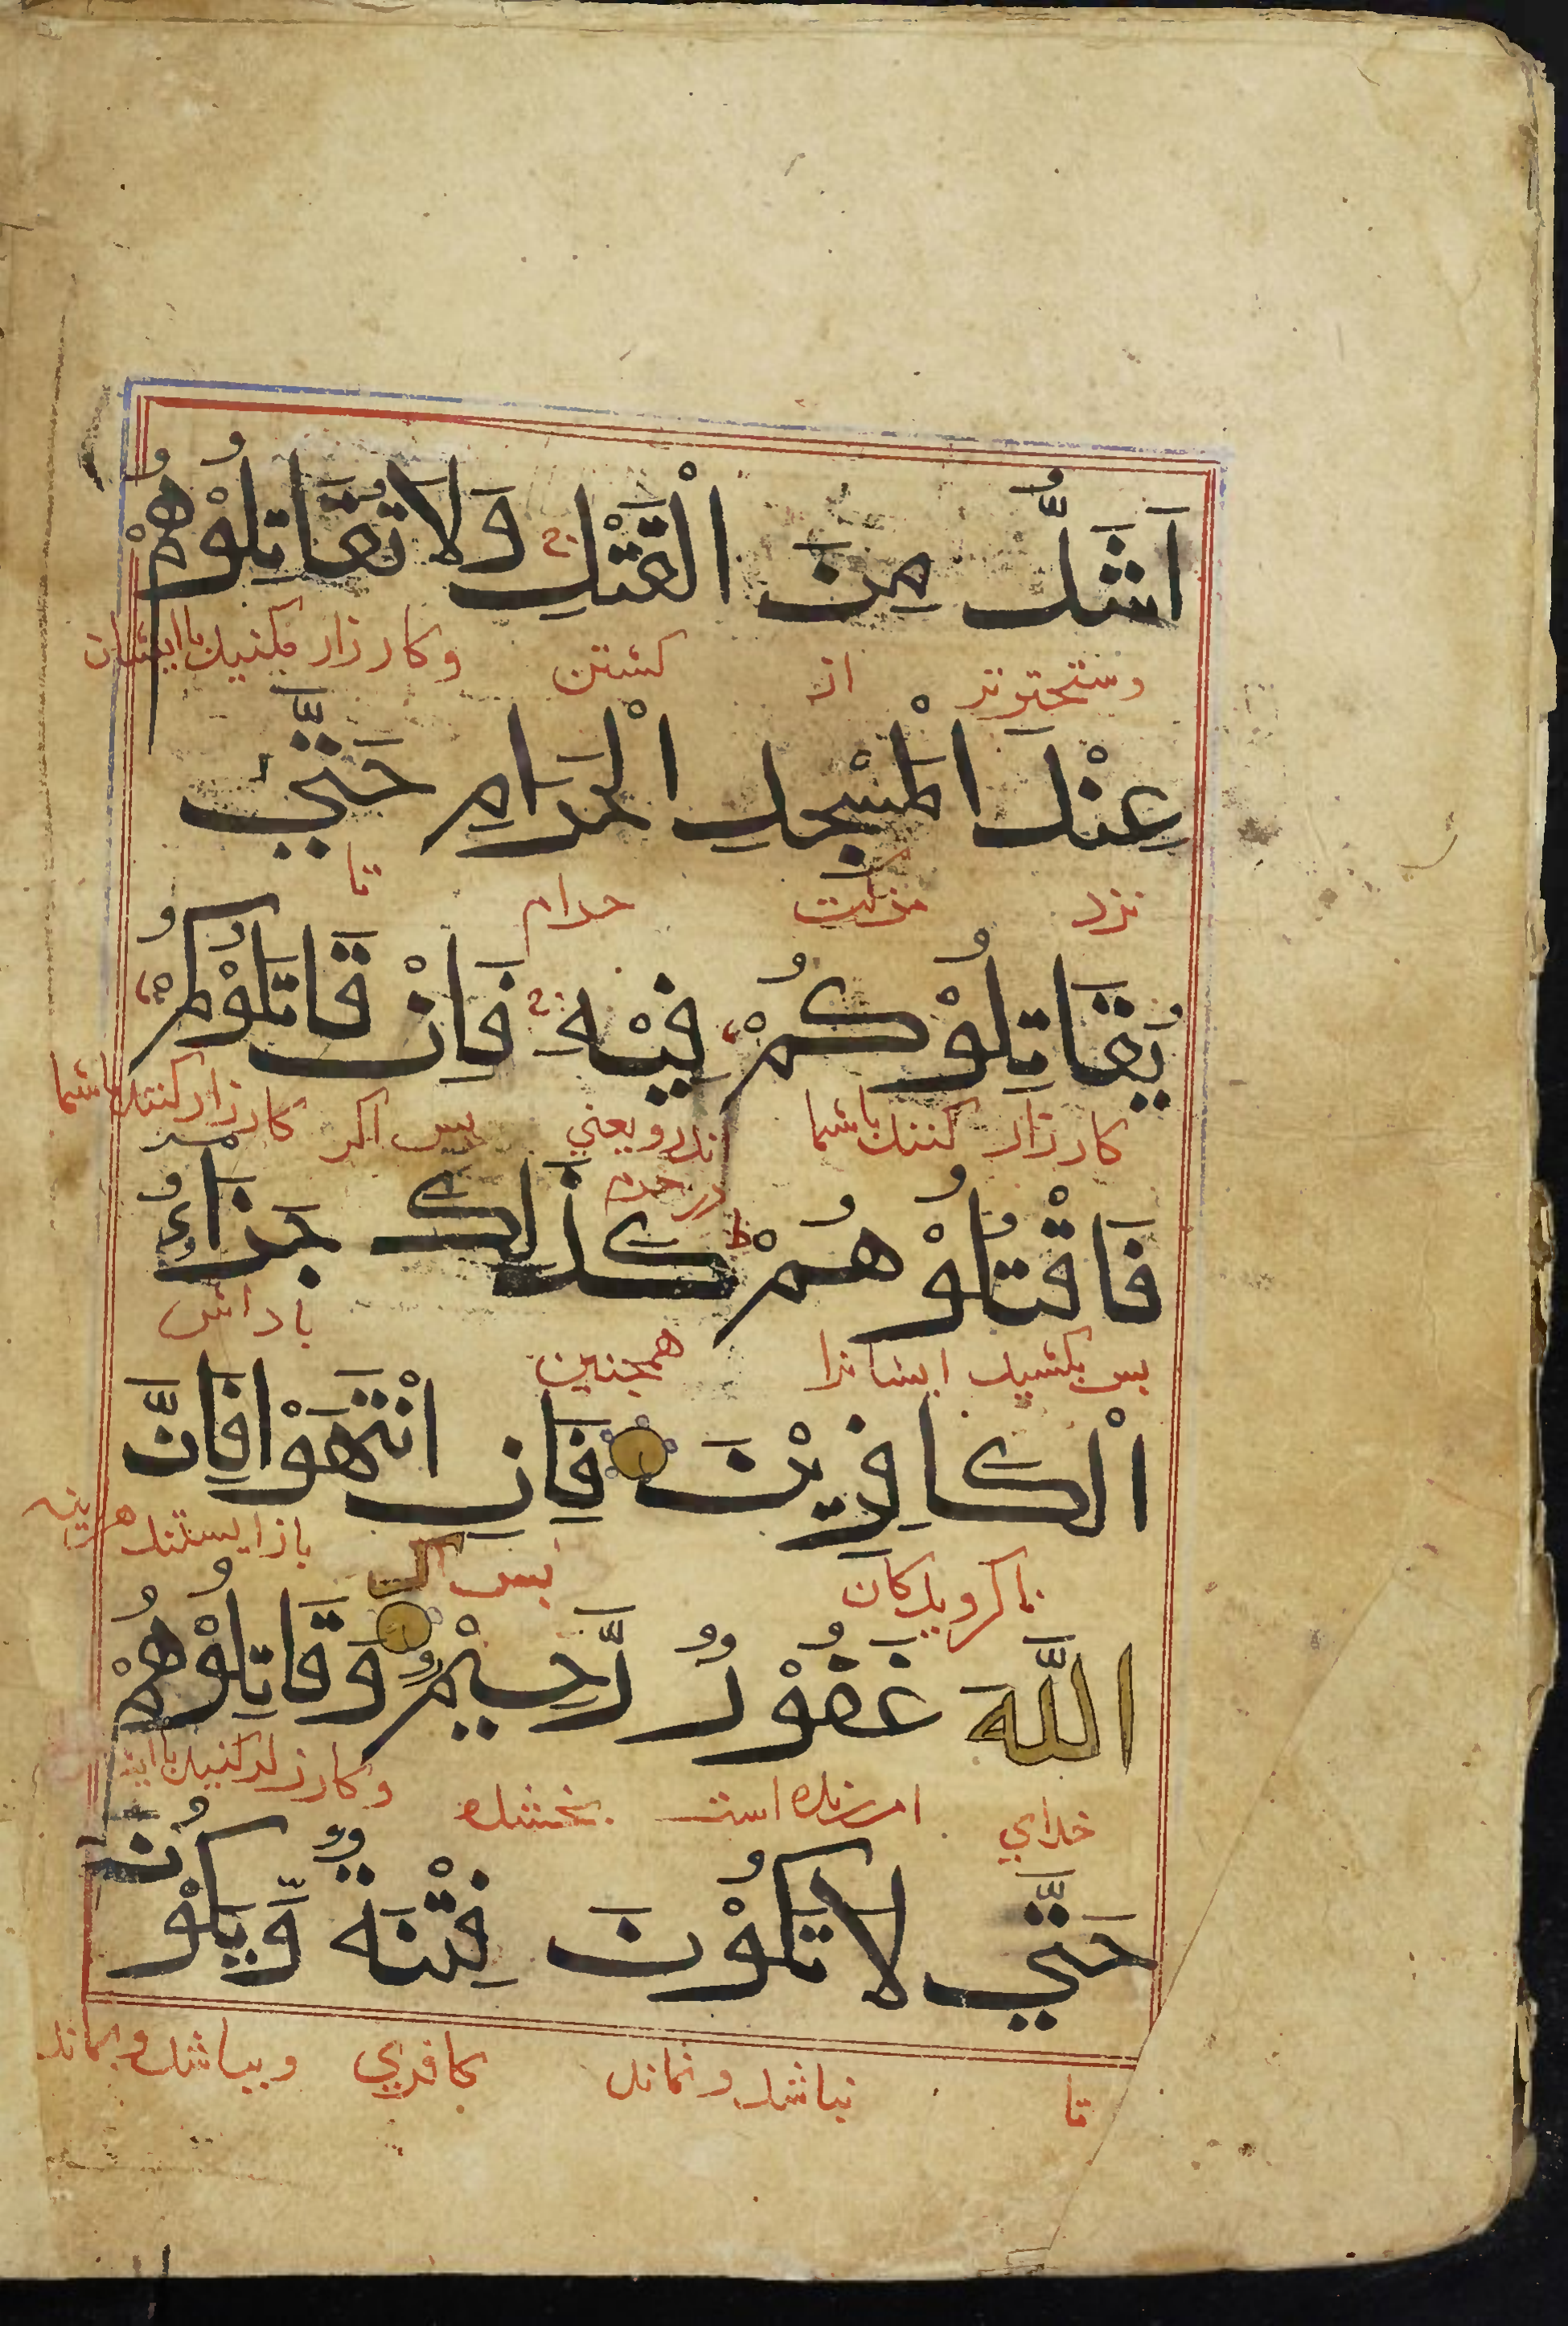 اَشَدُّ مِنَ الْقَتْلِ ج وَلَا تُقَاتِلُوْهُمْ
وسختر تر از كشتن وكارزار مكنيد با ايشان
عِنْدَ الْمَسْجِدِ الْحَرَامِ حَتّٰي
نزد مزكت حرام تا
يُقَاتِلُوْكُمْ فِيْهِ ج فَاِنْ قَاتَلُوْكُمْ
كارزار كنند باشما اندرو يعني بس اكر كارزار كنند باشما
در حرم
فَاقْتُلُوْهُمْ ط كَذٰلِكَ جَزَاءُ
بس بكشيد ايشانرا همجنين باداش
الْكَافِرِيْنَ فَاِنِ انْتَهَوْا فَاِنَّ
ناكرويدكان بس اكر بازايستند هراينه
اللّٰهَ غَفُوْرٌ رَّحِيْمٌ وَقَاتِلُوْهُمْ
خداي امرزنده است بخشنده وكارزار كنيد با
حَتّٰي لَا تَكُوْنَ فِتْنَةٌ وَّيَكُوْنَ
تا نباشد ونماند كافري وبباشد وبماند